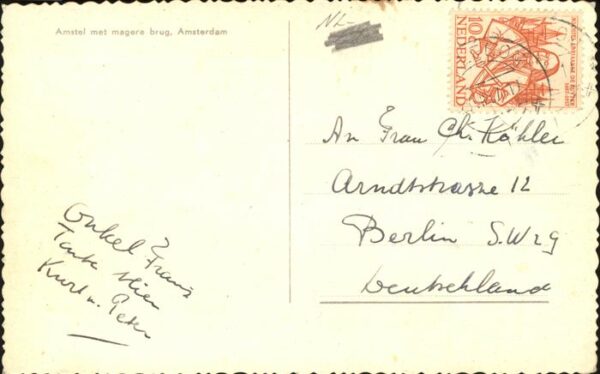 Amstel met magere brug, Amsterdam
NL-
10 c
NEDERLAND
An Frau Ch. Köhler
Arndtstrasse 12
Berlin S.W 29
Deutschland
Onkel Franz
Tante Mien
Kurt u. Peter